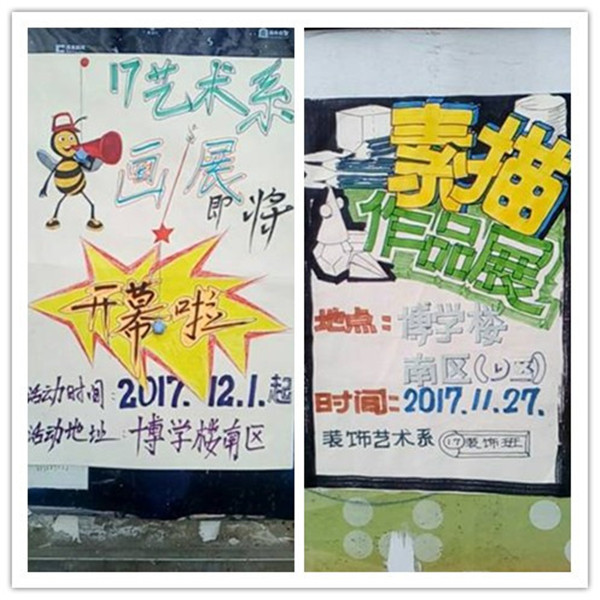 17艺术系
画展
即将
开幕啦
活动时间:2017.12.1.起
活动地址:博学楼南区
素描
作品展
地点:博学楼
南区(山区)
时间:2017.11.27.
装饰艺术系 17装饰班